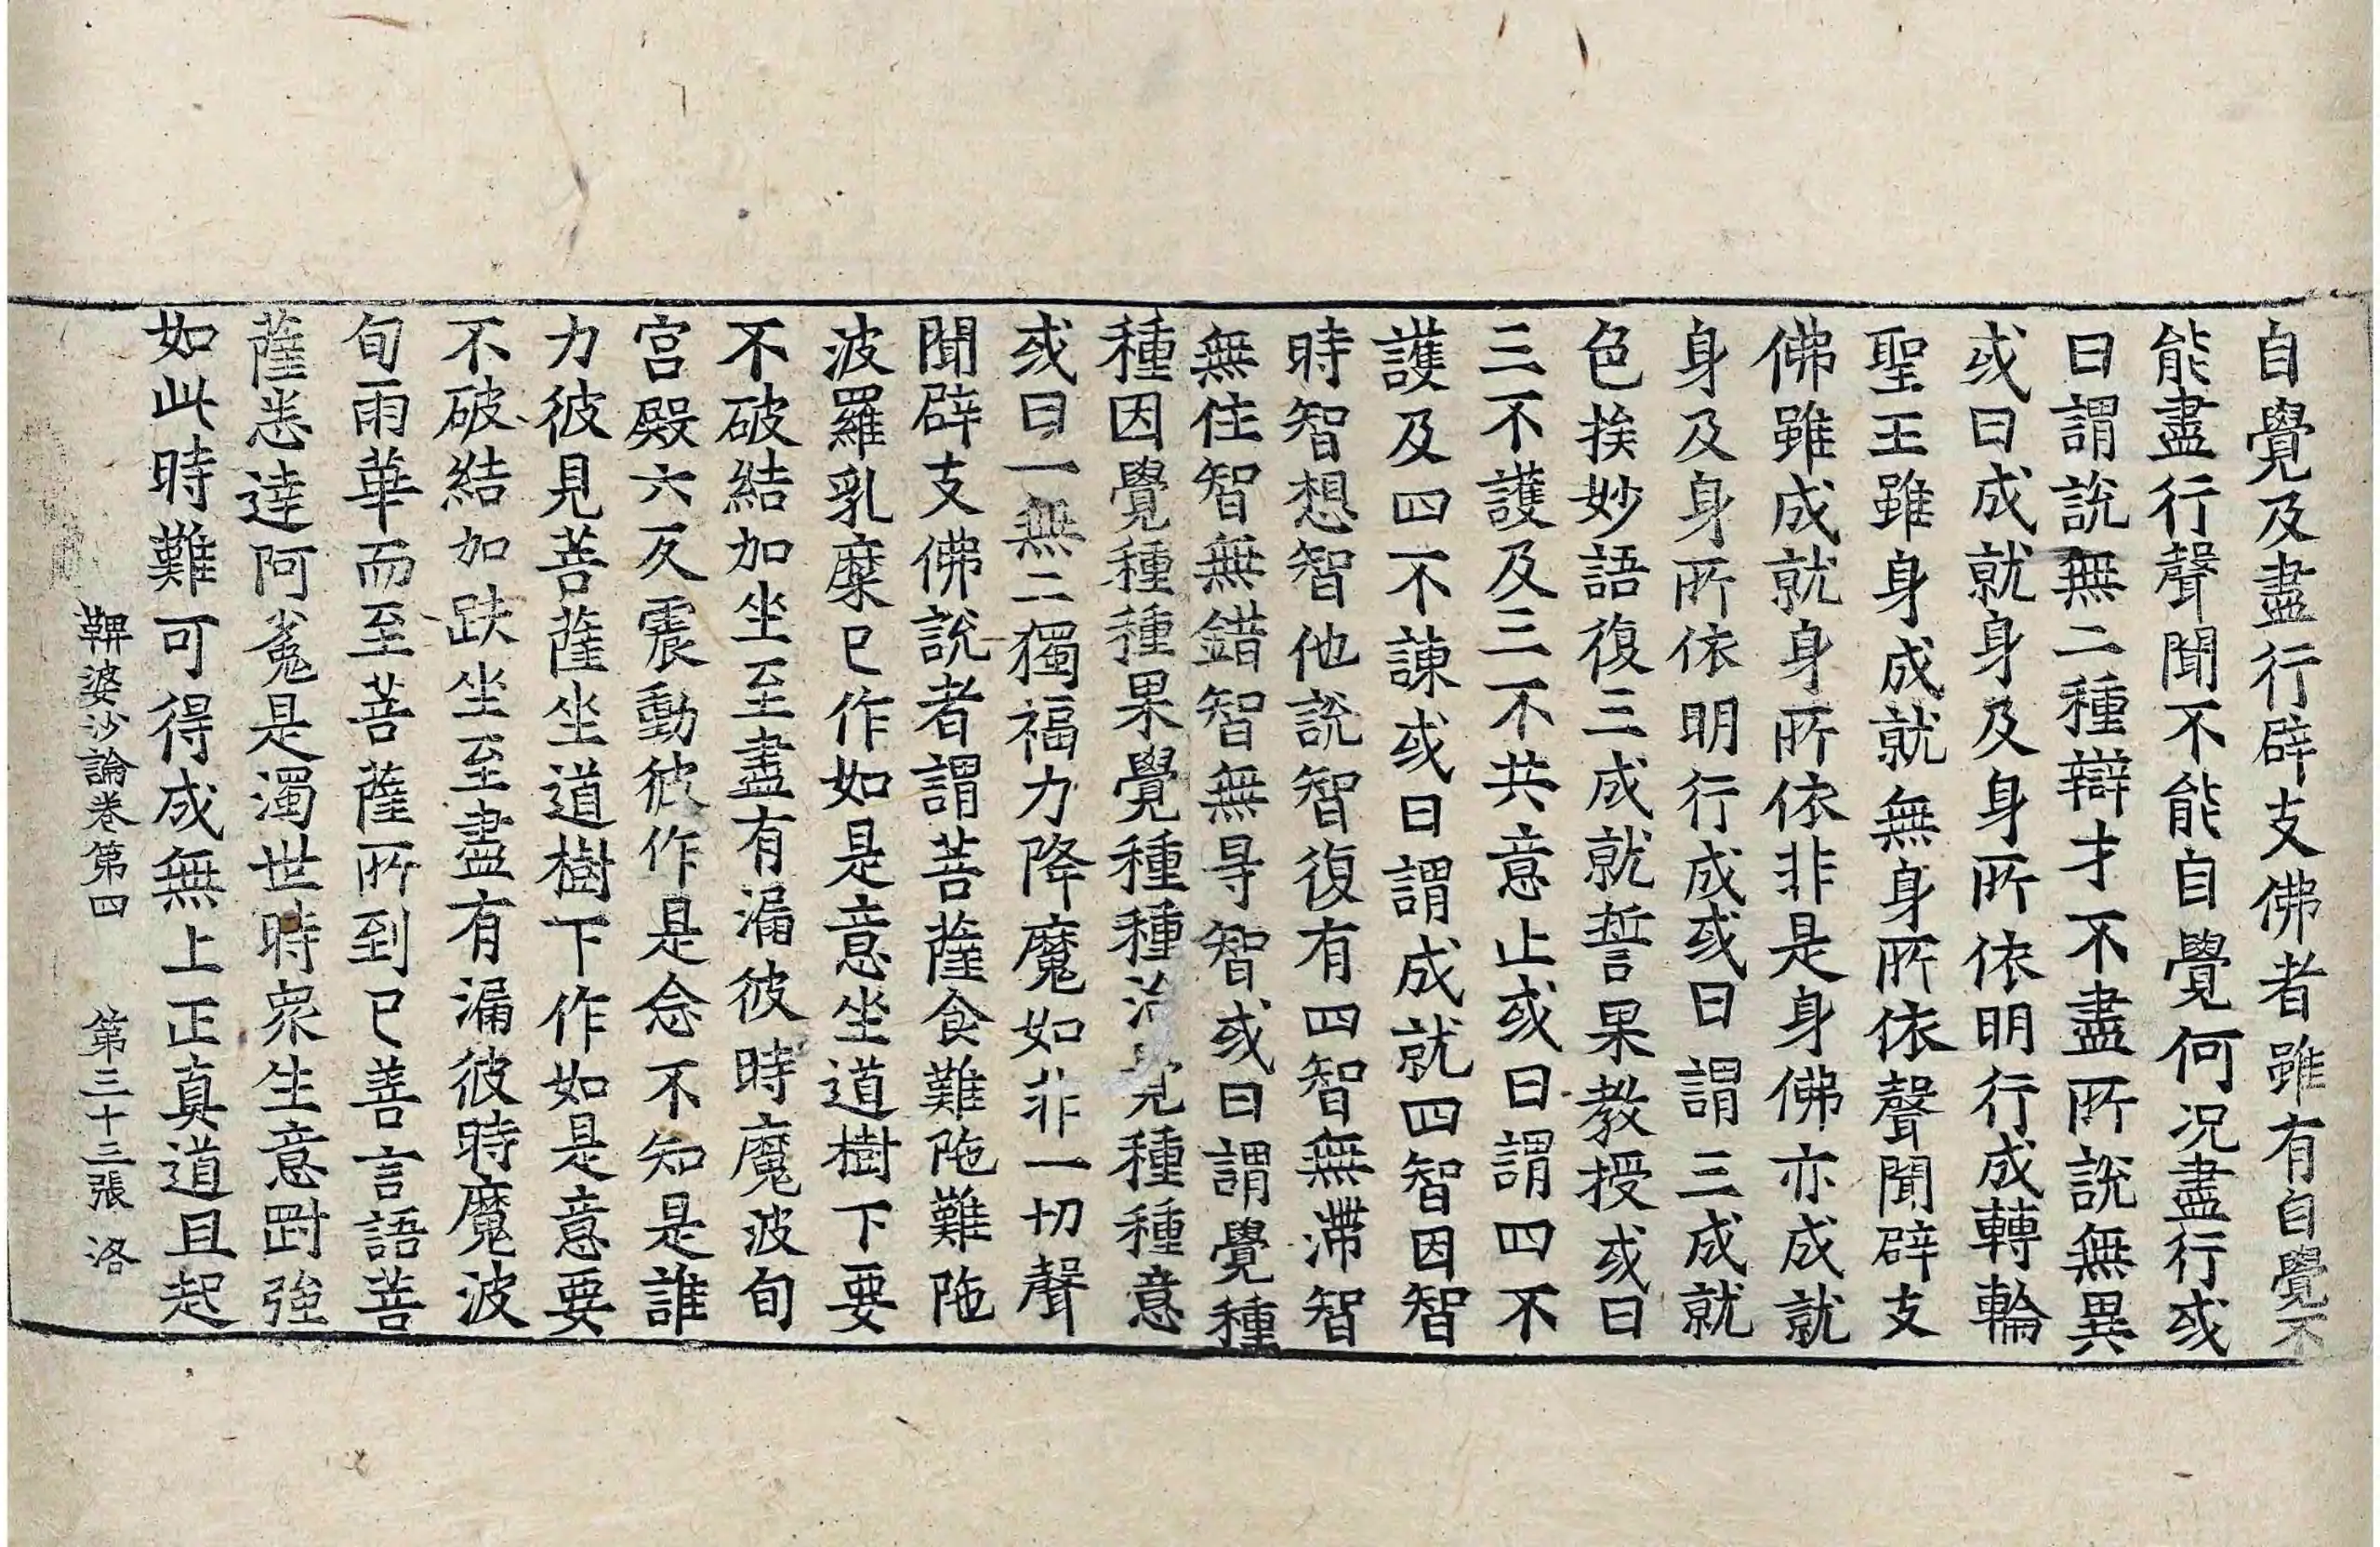 自覺及盡行辟支佛者雖有自覺不
能盡行聲聞不能自覺何況盡行或
曰謂說無二種辯才不盡所說無異
或曰成就身及身所依明行成轉輪
聖王雖身成就無身所依聲聞辟支
佛雖成就身所依非是身佛亦成就
身及身所依明行成或曰謂三成就
色挨妙語復三成就誓果教授或曰
三不護及三不共意止或曰謂四不
護及四不諫或曰謂成就四智因智
時智想智他說智復有四智無滯智
無住智無錯智無㝵智或曰謂覺種
種因覺種種果覺種種治覺種種意
或曰一無二獨福力降魔如非一切聲
聞辟支佛說者謂菩薩食難陁難陁
波羅乳糜已作如是意坐道樹下要
不破結加坐至盡有漏彼時魔波旬
宮殿六反震動彼作是念不知是誰
力彼見菩薩坐道樹下作如是意要
不破結加趺坐至盡有漏彼時魔波
旬雨華而至菩薩所到已善言語菩
薩悉達阿㝹是濁世時衆生意㓰強
如此時難可得成無上正真道且起
鞞婆沙論卷第四　第三十三張　洛